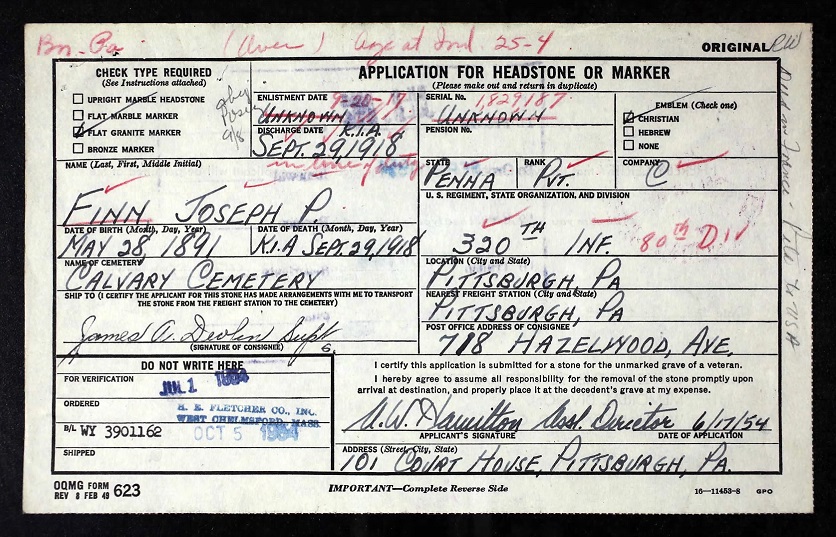 Bn. Pa (Over) Age at Ind. 25-4
ORIGINAL RW
CHECK TYPE REQUIRED
(See Instructions attached)
UPRIGHT MARBLE HEADSTONE
FLAT MARBLE MARKER
FLAT GRANITE MARKER
BRONZE MARKER
APPLICATION FOR HEADSTONE OR MARKER
(Please make out and return in duplicate)
ENLISTMENT DATE 9-20-17
UNKNOWN
DISCHARGE DATE K.I.A.
SEPT. 29, 1918
in line of duty
SERIAL No. 1,829,187
UNKNOWN
PENSION No.
EMBLEM (Check one)
CHRISTIAN
HEBREW
NONE
NAME (Last, First, Middle Initial)
FINN JOSEPH P.
STATE
PENNA
RANK
PVT.
COMPANY
C
U. S. REGIMENT, STATE ORGANIZATION, AND DIVISION
320TH INF. 80th DIV
DATE OF BIRTH (Month, Day, Year)
MAY 28 1891
DATE OF DEATH (Month, Day, Year)
K.I.A SEPT. 29, 1918
NAME OF CEMETERY
CALVARY CEMETERY
LOCATION (City and State)
PITTSBURGH, PA
SHIP TO (I CERTIFY THE APPLICANT FOR THIS STONE HAS MADE ARRANGEMENTS WITH ME TO TRANSPORT
THE STONE FROM THE FREIGHT STATION TO THE CEMETERY)
NEAREST FREIGHT STATION (City and State)
PITTSBURGH, PA
James A. Devlin Supt
(SIGNATURE OF CONSIGNEE)
POST OFFICE ADDRESS OF CONSIGNEE
718 HAZELWOOD, AVE.
DO NOT WRITE HERE
FOR VERIFICATION
JUL 1 1954
ORDERED
H. E. FLETCHER CO., INC.
WEST CHELMSFORD, MASS.
B/L WY 3901162
OCT 5 1954
SHIPPED
I certify this application is submitted for a stone for the unmarked grave of a veteran.
I hereby agree to assume all responsibility for the removal of the stone promptly upon
arrival at destination, and properly place it at the decedent's grave at my expense.
A.W. Hamilton Asst. Director 6/17/54
APPLICANT'S SIGNATURE
DATE OF APPLICATION
ADDRESS (Street, City, State)
101 COURT HOUSE, PITTSBURGH, PA.
OQMG FORM
REV 8 FEB 49 623
IMPORTANT—Complete Reverse Side
16—11453-8 GPO